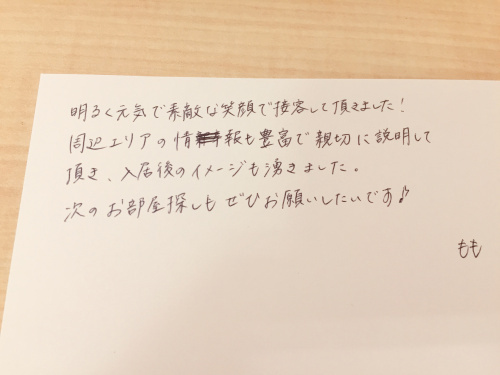 明るく元気で素敵な笑顔で接客して頂きました!
周辺エリアの情報も豊富で親切に説明して
頂き、入居後のイメージも湧きました。
次のお部屋探しもぜひお願いしたいです♪
もも